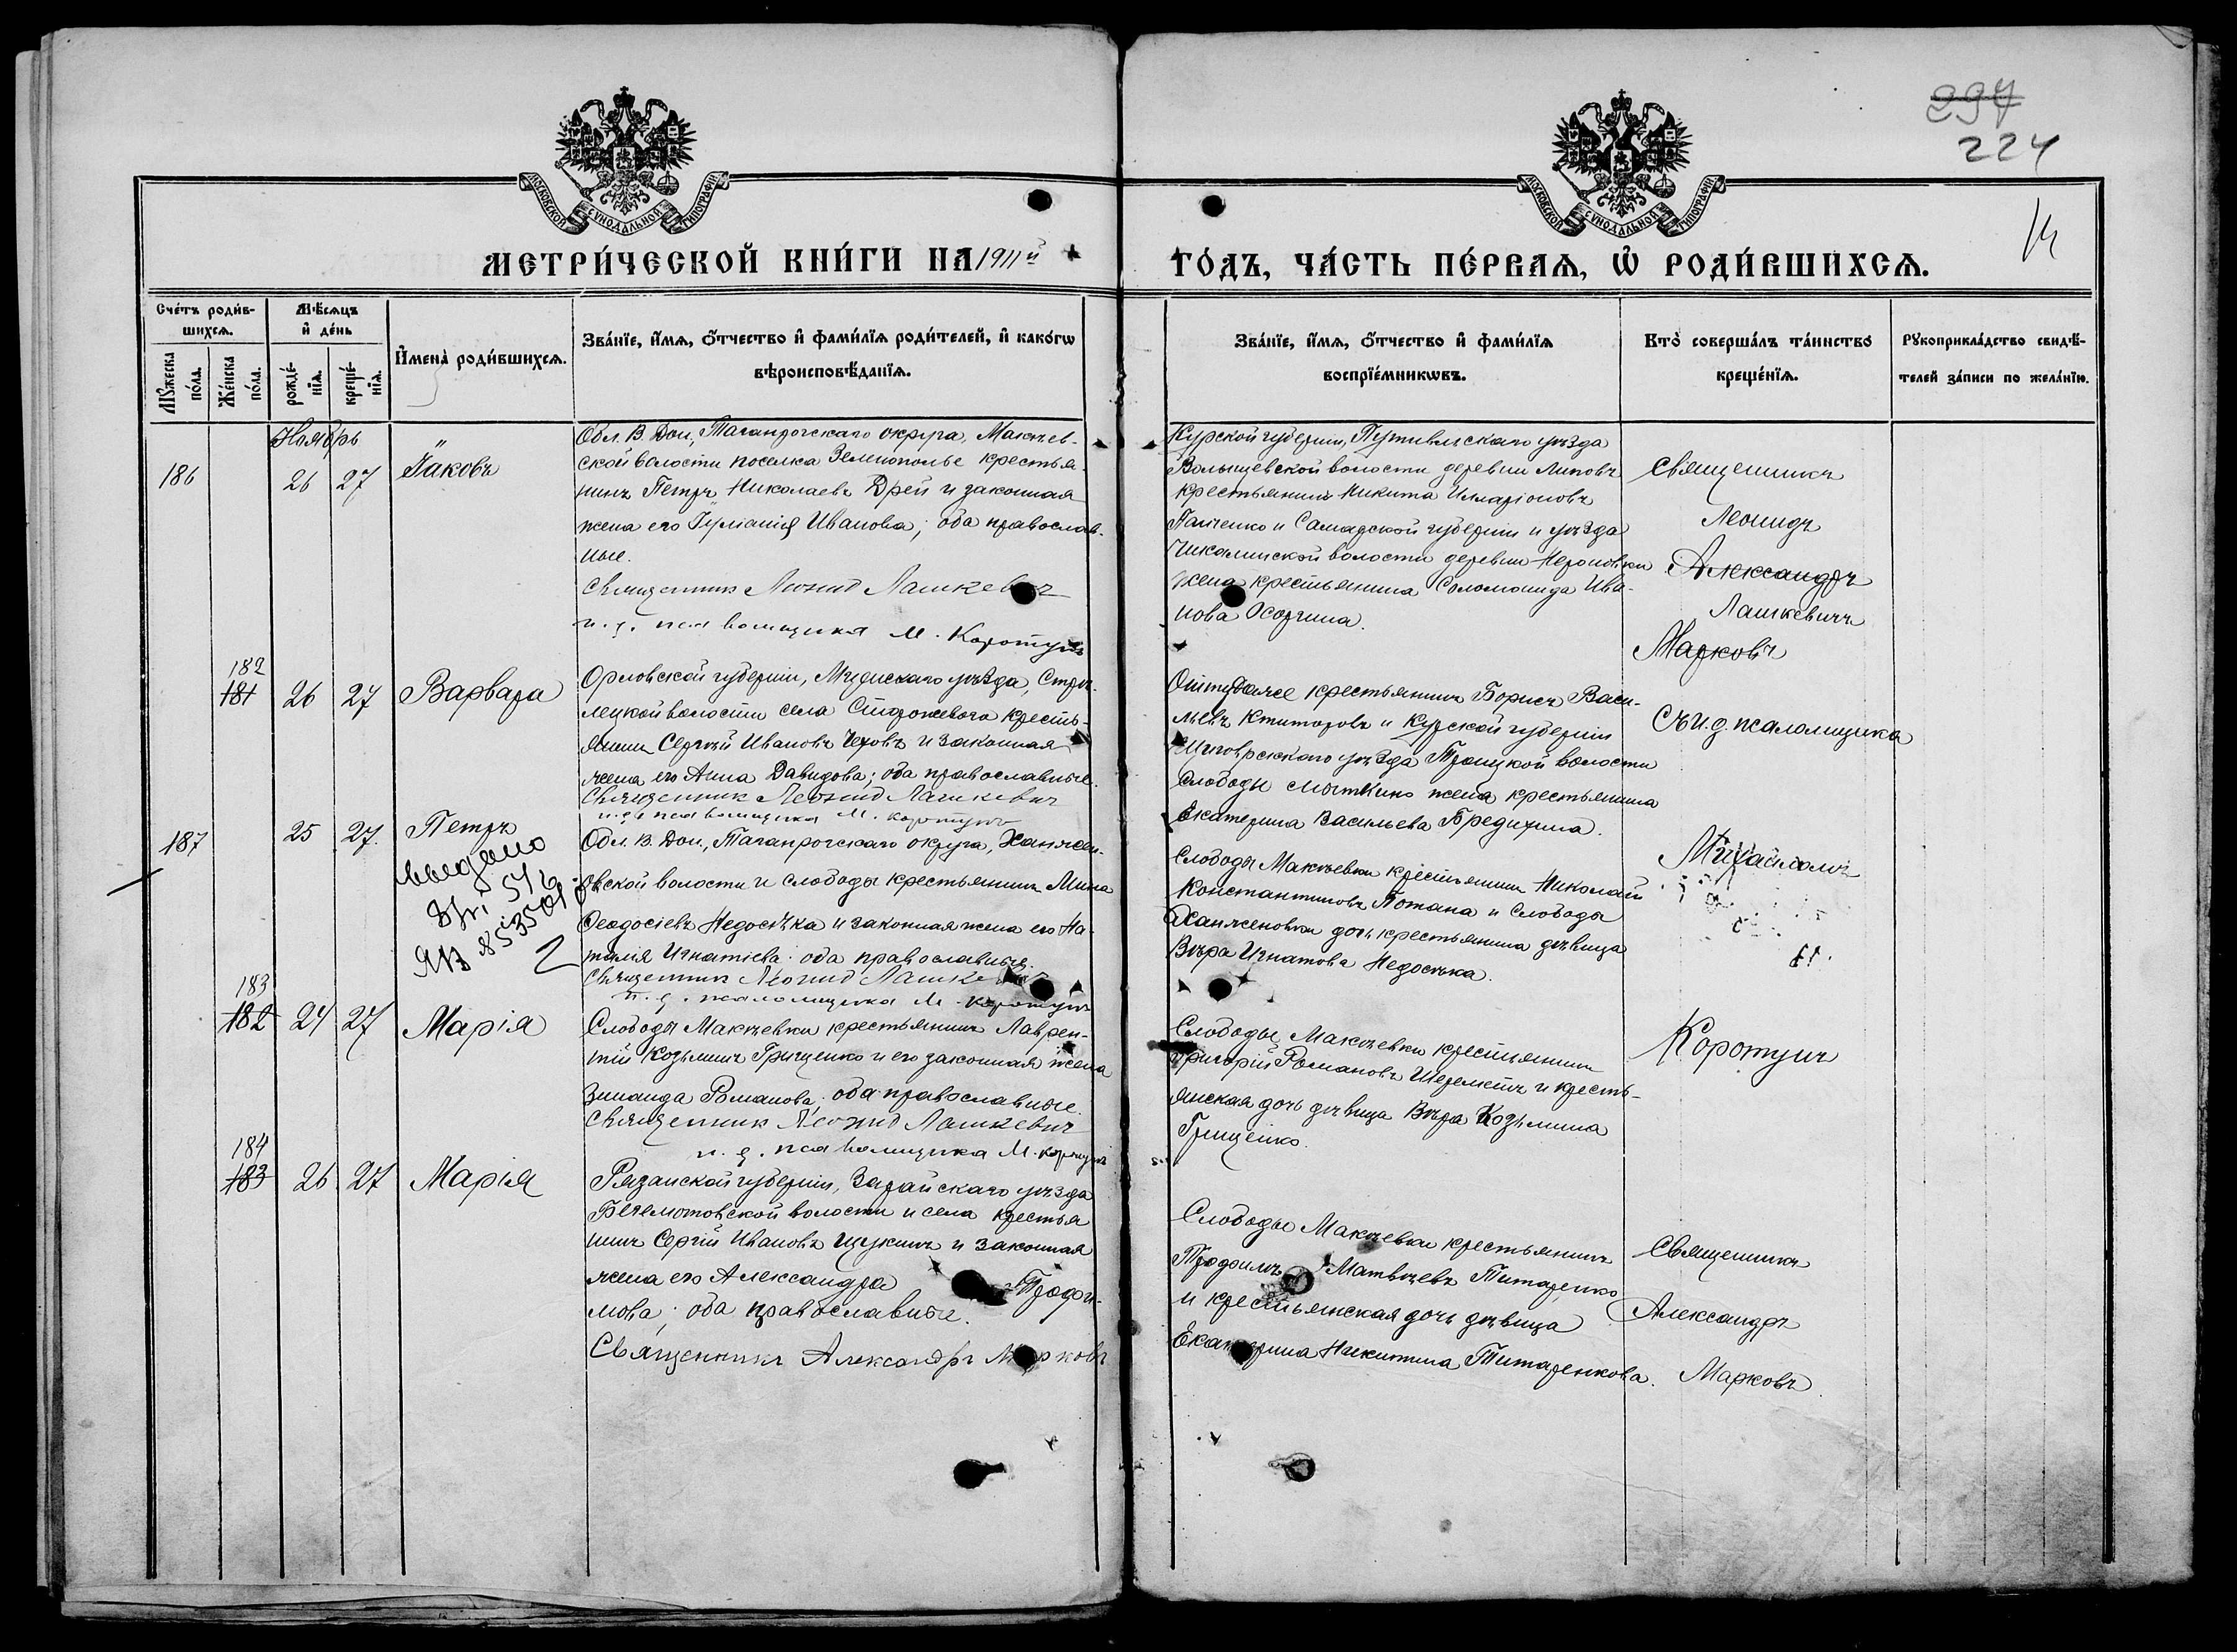 297
224
14
МОСКОВСКОЙ СѴНОДАЛЬНОЙ ТИПОГРАФІИ
МОСКОВСКОЙ СѴНОДАЛЬНОЙ ТИПОГРАФІИ
МЕТРИ́ЧЕСКОЙ КНИ́ГИ НА 1911й
ГО́ДЪ, ЧА́СТЬ ПЕ́РВАѦ, Ѡ҆ РОДИ́ВШИХСѦ.
Сче́тъ роди́в-
шихсѧ.
Мꙋ́жеска
по́ла.
Же́нска
по́ла.
Мѣ́сѧцъ
и҆ де́нь
рожде́-
нїѧ.
креще́-
нїѧ.
И҆мена̀ роди́вшихсѧ.
Зва́нїе, и҆́мѧ, ѻ҆́тчество и҆ фами́лїѧ роди́телей, и҆ како́гѡ
вѣроисповѣ́данїѧ.
Зва́нїе, и҆́мѧ, ѻ҆́тчество и҆ фами́лїѧ
воспрїе́мникѡвъ.
Кто̀ соверша́лъ та́инство
креще́нїѧ.
Рꙋкоприкла́дство свидѣ́-
телей за́писи по жела́нїю.
Ноябрь
186
26 27
Іаковъ
Обл. В. Дон., Таганрогскаго округа, Макѣев-
ской волости поселка Зеленополье крестья-
нинъ Петръ Николаевъ Дрей и законная
жена его Іуліанія Иванова; оба православ-
ные.
Священник Леонид Лашкевич
и. д. псаломщика М. Коротун
Курской губерніи, Путивльскаго уѣзда
Волынцевской волости деревни Линовъ
крестьянинъ Никита Илларіоновъ
Панченко и Самарской губерніи и уѣзда
волости деревни Нероновки
жена крестьянина Соломонида Ива-
нова Осоргина.
Священникъ
Леонидъ
Александръ
Лашкевичъ
Марковъ
182
181
26 27
Варвара
Орловской губерніи, Мценскаго уѣзда, Стрѣ-
лецкой волости села Сторожеваго кресть-
янинъ Сергѣй Ивановъ Черовъ и законная
жена его Анна Давидова; оба православные.
Священник Леонид Лашкевич
и. д. псаломщика М. Коротун
Оттудаже крестьянинъ Борисъ Васи-
льевъ Ктиторовъ и Курской губерніи
Щигровскаго уѣзда Троицкой волости
слободы жена крестьянина
Екатерина Васильева Бредихина.
Съ и. д. псаломщика
187
25 27.
Петръ
введено
546
ЯВ
2
Обл. В. Дон., Таганрогскаго округа, Ханжен-
овской волости и слободы крестьянинъ Мина
Ѳеодосіевъ Недосѣка и законная жена его На-
талія Игнатіева; оба православные.
Священник Леонид Лашкевич
и. д. псаломщика М. Коротун
Слободы Макѣевки крестьянинъ Николай
Константиновъ Потана и слободы
Ханженовки дочь крестьянина дѣвица
Вѣра Игнатова Недосѣка.
Михаиломъ
183
182
24 27
Марія
Слободы Макѣевки крестьянинъ Лаврен-
тій Козьминъ Грищенко и его законная жена
Зинаида Романова; оба православные.
Священник Леонид Лашкевич
и. д. псаломщика М. Коротун
Слободы Макѣевки крестьянинъ
Григорій Романовъ Шереметъ и кресть-
янская дочь дѣвица Вѣра Козьмина
Грищенко.
Коротунъ
184
183
26 27
Марія
Рязанской губерніи, Зарайскаго уѣзда
волости и села крестья
нинъ Сергій Ивановъ Щукинъ и законная
жена его Александра Трофи-
мова; оба православные.
Священникъ Александръ Марковъ
Слободы Макѣевки крестьянинъ
Трофимъ Матвѣевъ Титаренко
и крестьянская дочь дѣвица
Екатерина Никитина Титаренкова.
Священникъ
Александръ
Марковъ